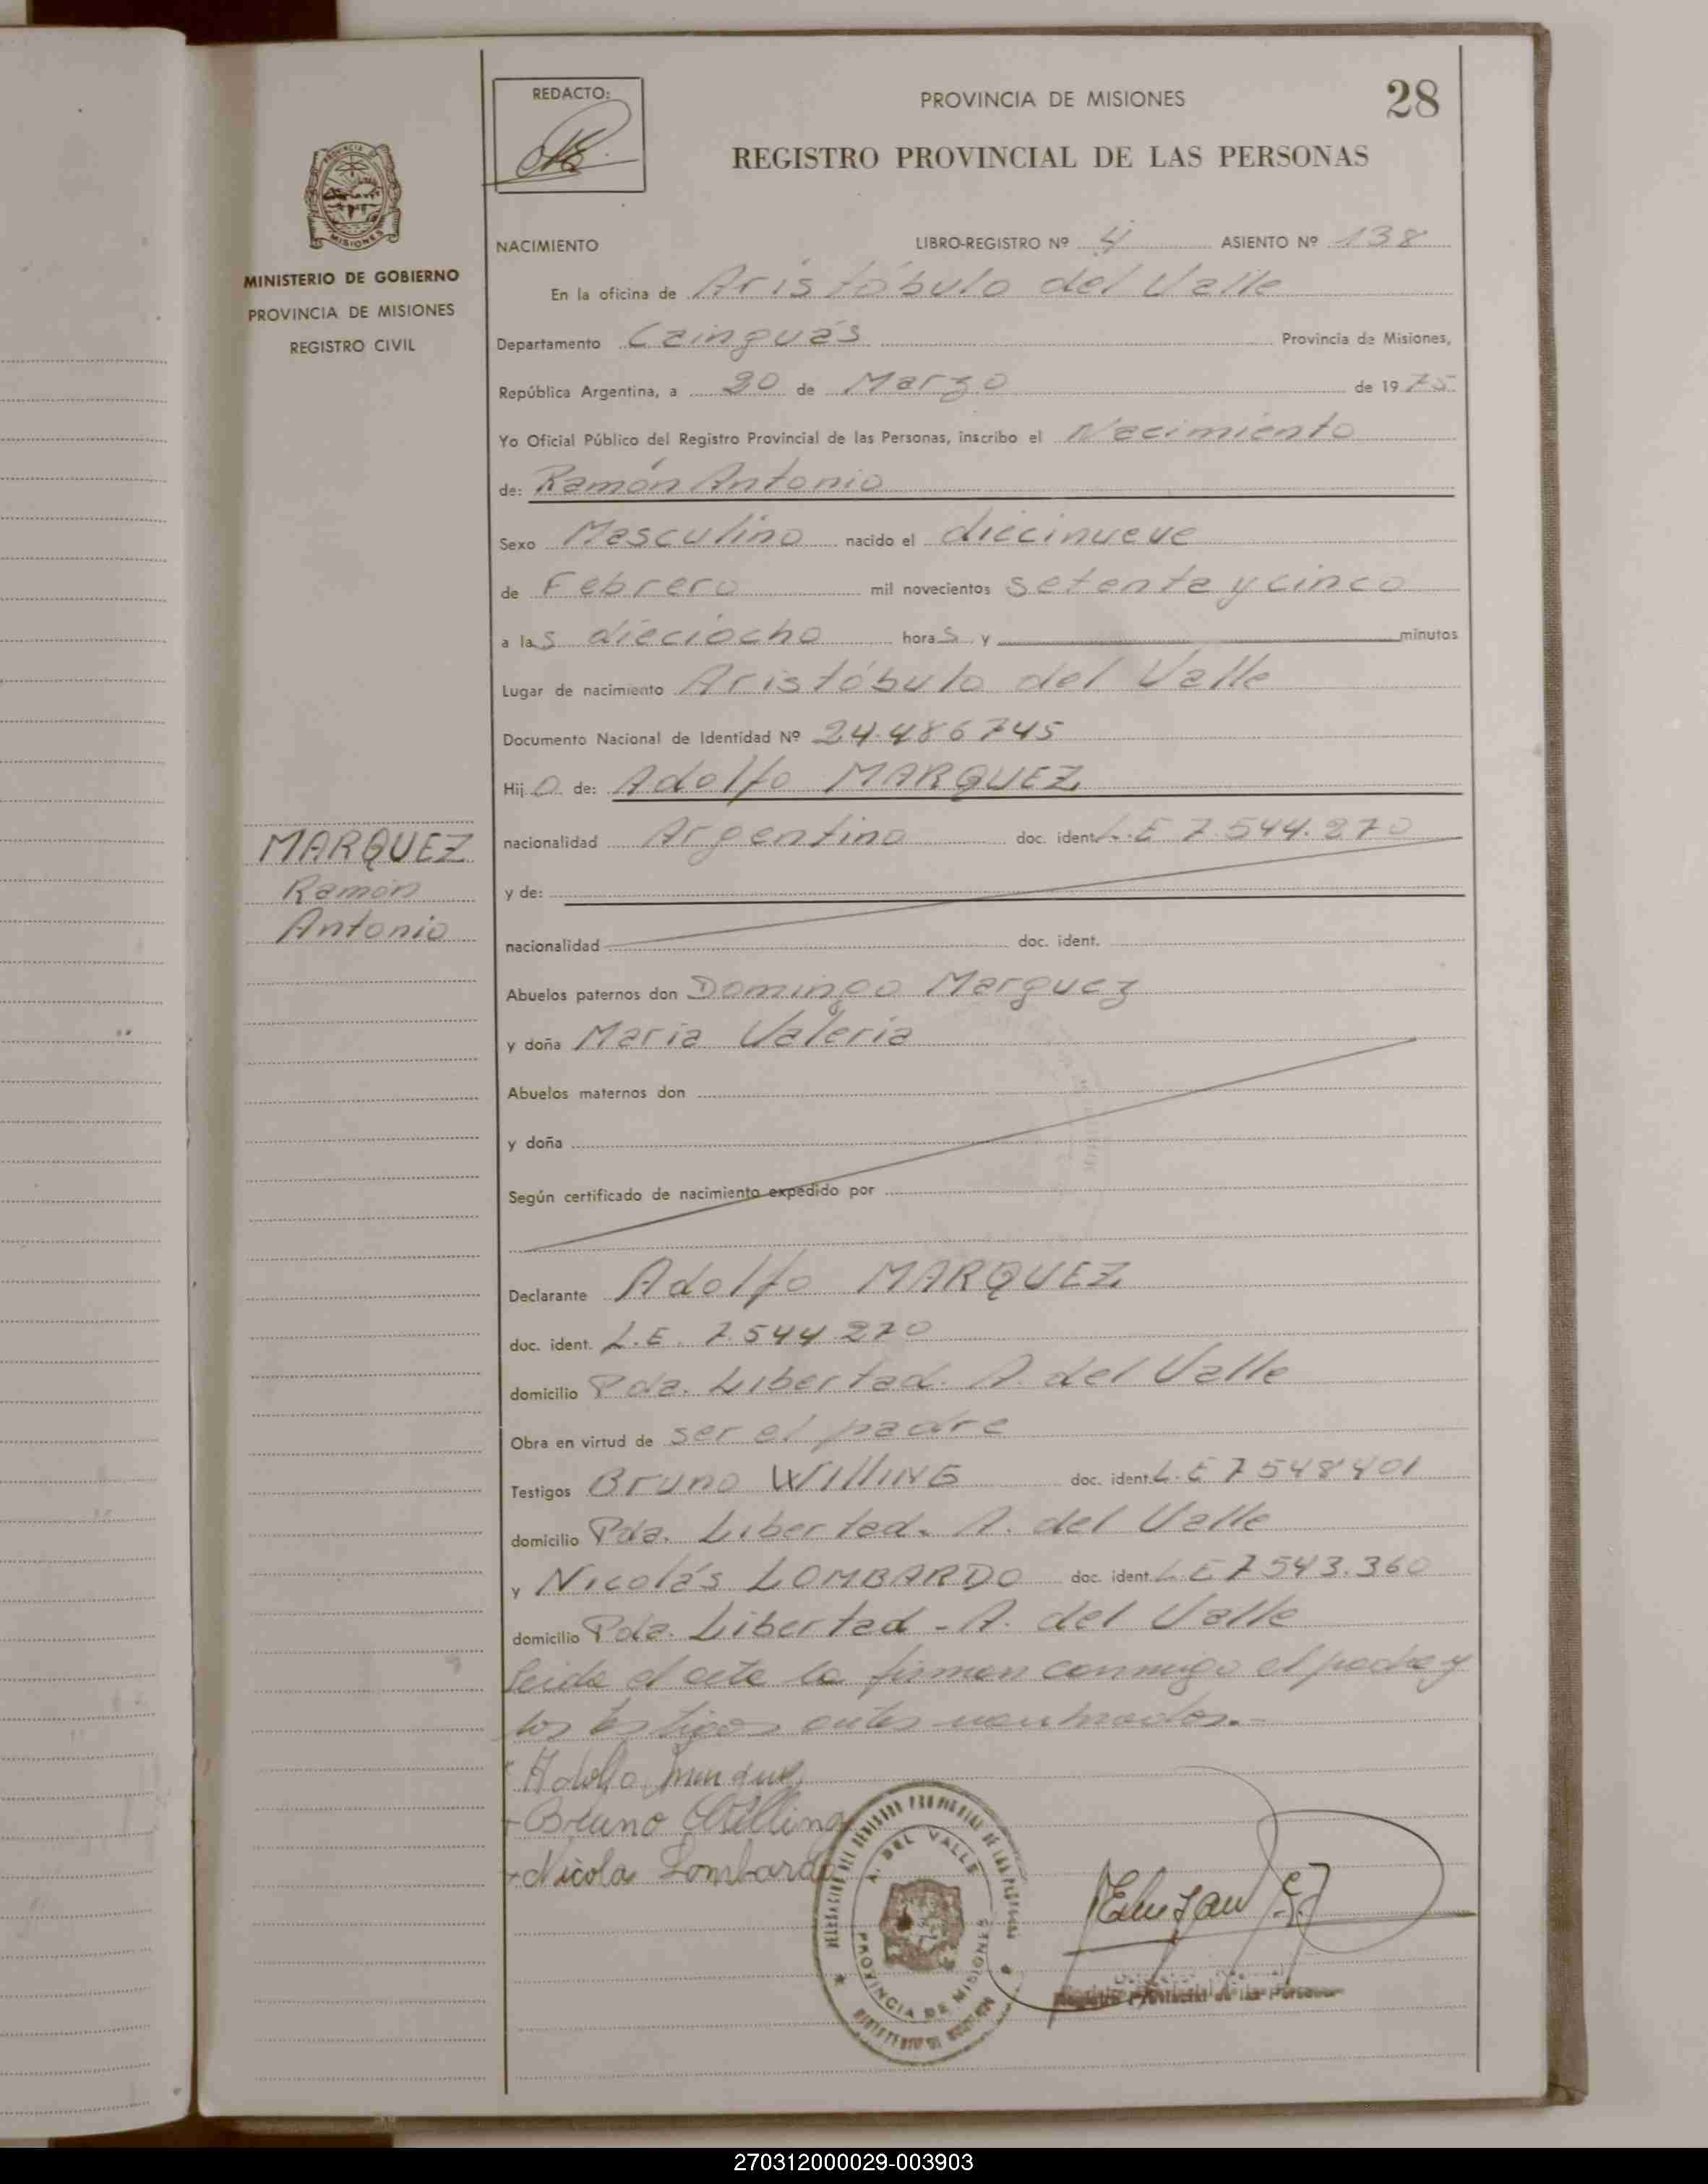 REDACTO:
PROVINCIA DE MISIONES
28
REGISTRO PROVINCIAL DE LAS PERSONAS
MISIONES
MINISTERIO DE GOBIERNO
PROVINCIA DE MISIONES
REGISTRO CIVIL
NACIMIENTO LIBRO-REGISTRO Nº 4 ASIENTO Nº 138
En la oficina de Aristóbulo del Valle
Departamento Cainguás Provincia de Misiones,
República Argentina, a 20 de Marzo de 1975
Yo Oficial Público del Registro Provincial de las Personas, inscribo el Nacimiento
de: Ramón Antonio
Sexo Masculino nacido el diecinueve
de Febrero mil novecientos setenta y cinco
a las dieciocho horas y minutos
Lugar de nacimiento Aristóbulo del Valle
Documento Nacional de Identidad Nº 24.486745
Hijo de: Adolfo MARQUEZ
nacionalidad Argentino doc. ident. L.E 7.544.270
MARQUEZ
Ramón
Antonio
y de:
nacionalidad doc. ident.
Abuelos paternos don Domingo Marquez
y doña Maria Valeria
Abuelos maternos don
y doña
Según certificado de nacimiento expedido por
Declarante Adolfo MARQUEZ
doc. ident. L.E. 7.544.270
domicilio Pda. Libertad. A. del Valle
Obra en virtud de ser el padre
Testigos Bruno WILLING doc. ident. L.E 7548401
domicilio Pda. Libertad. A. del Valle
y Nicolás LOMBARDO doc. ident. L.E 7543.360
domicilio Pda. Libertad - A. del Valle
Leida el acta la firman conmigo el padre y
los testigos antes nombrados.-
Adolfo
Bruno Willing
Nicola Lombardo
DELEGACION DEL REGISTRO PROVINCIAL DE LAS PERSONAS
A. DEL VALLE
PROVINCIA DE MISIONES
Registro Provincial de las Personas
270312000029-003903